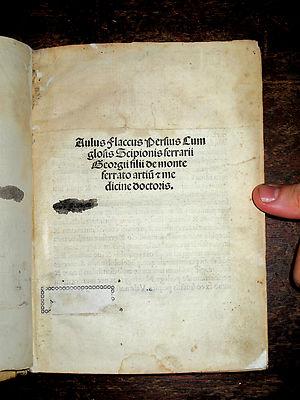 Aulus Flaccus Persius Cum
glosis Scipionis ferrarii
Georgii filii de monte
ferrato artiū ⁊ me
dicine doctoris.